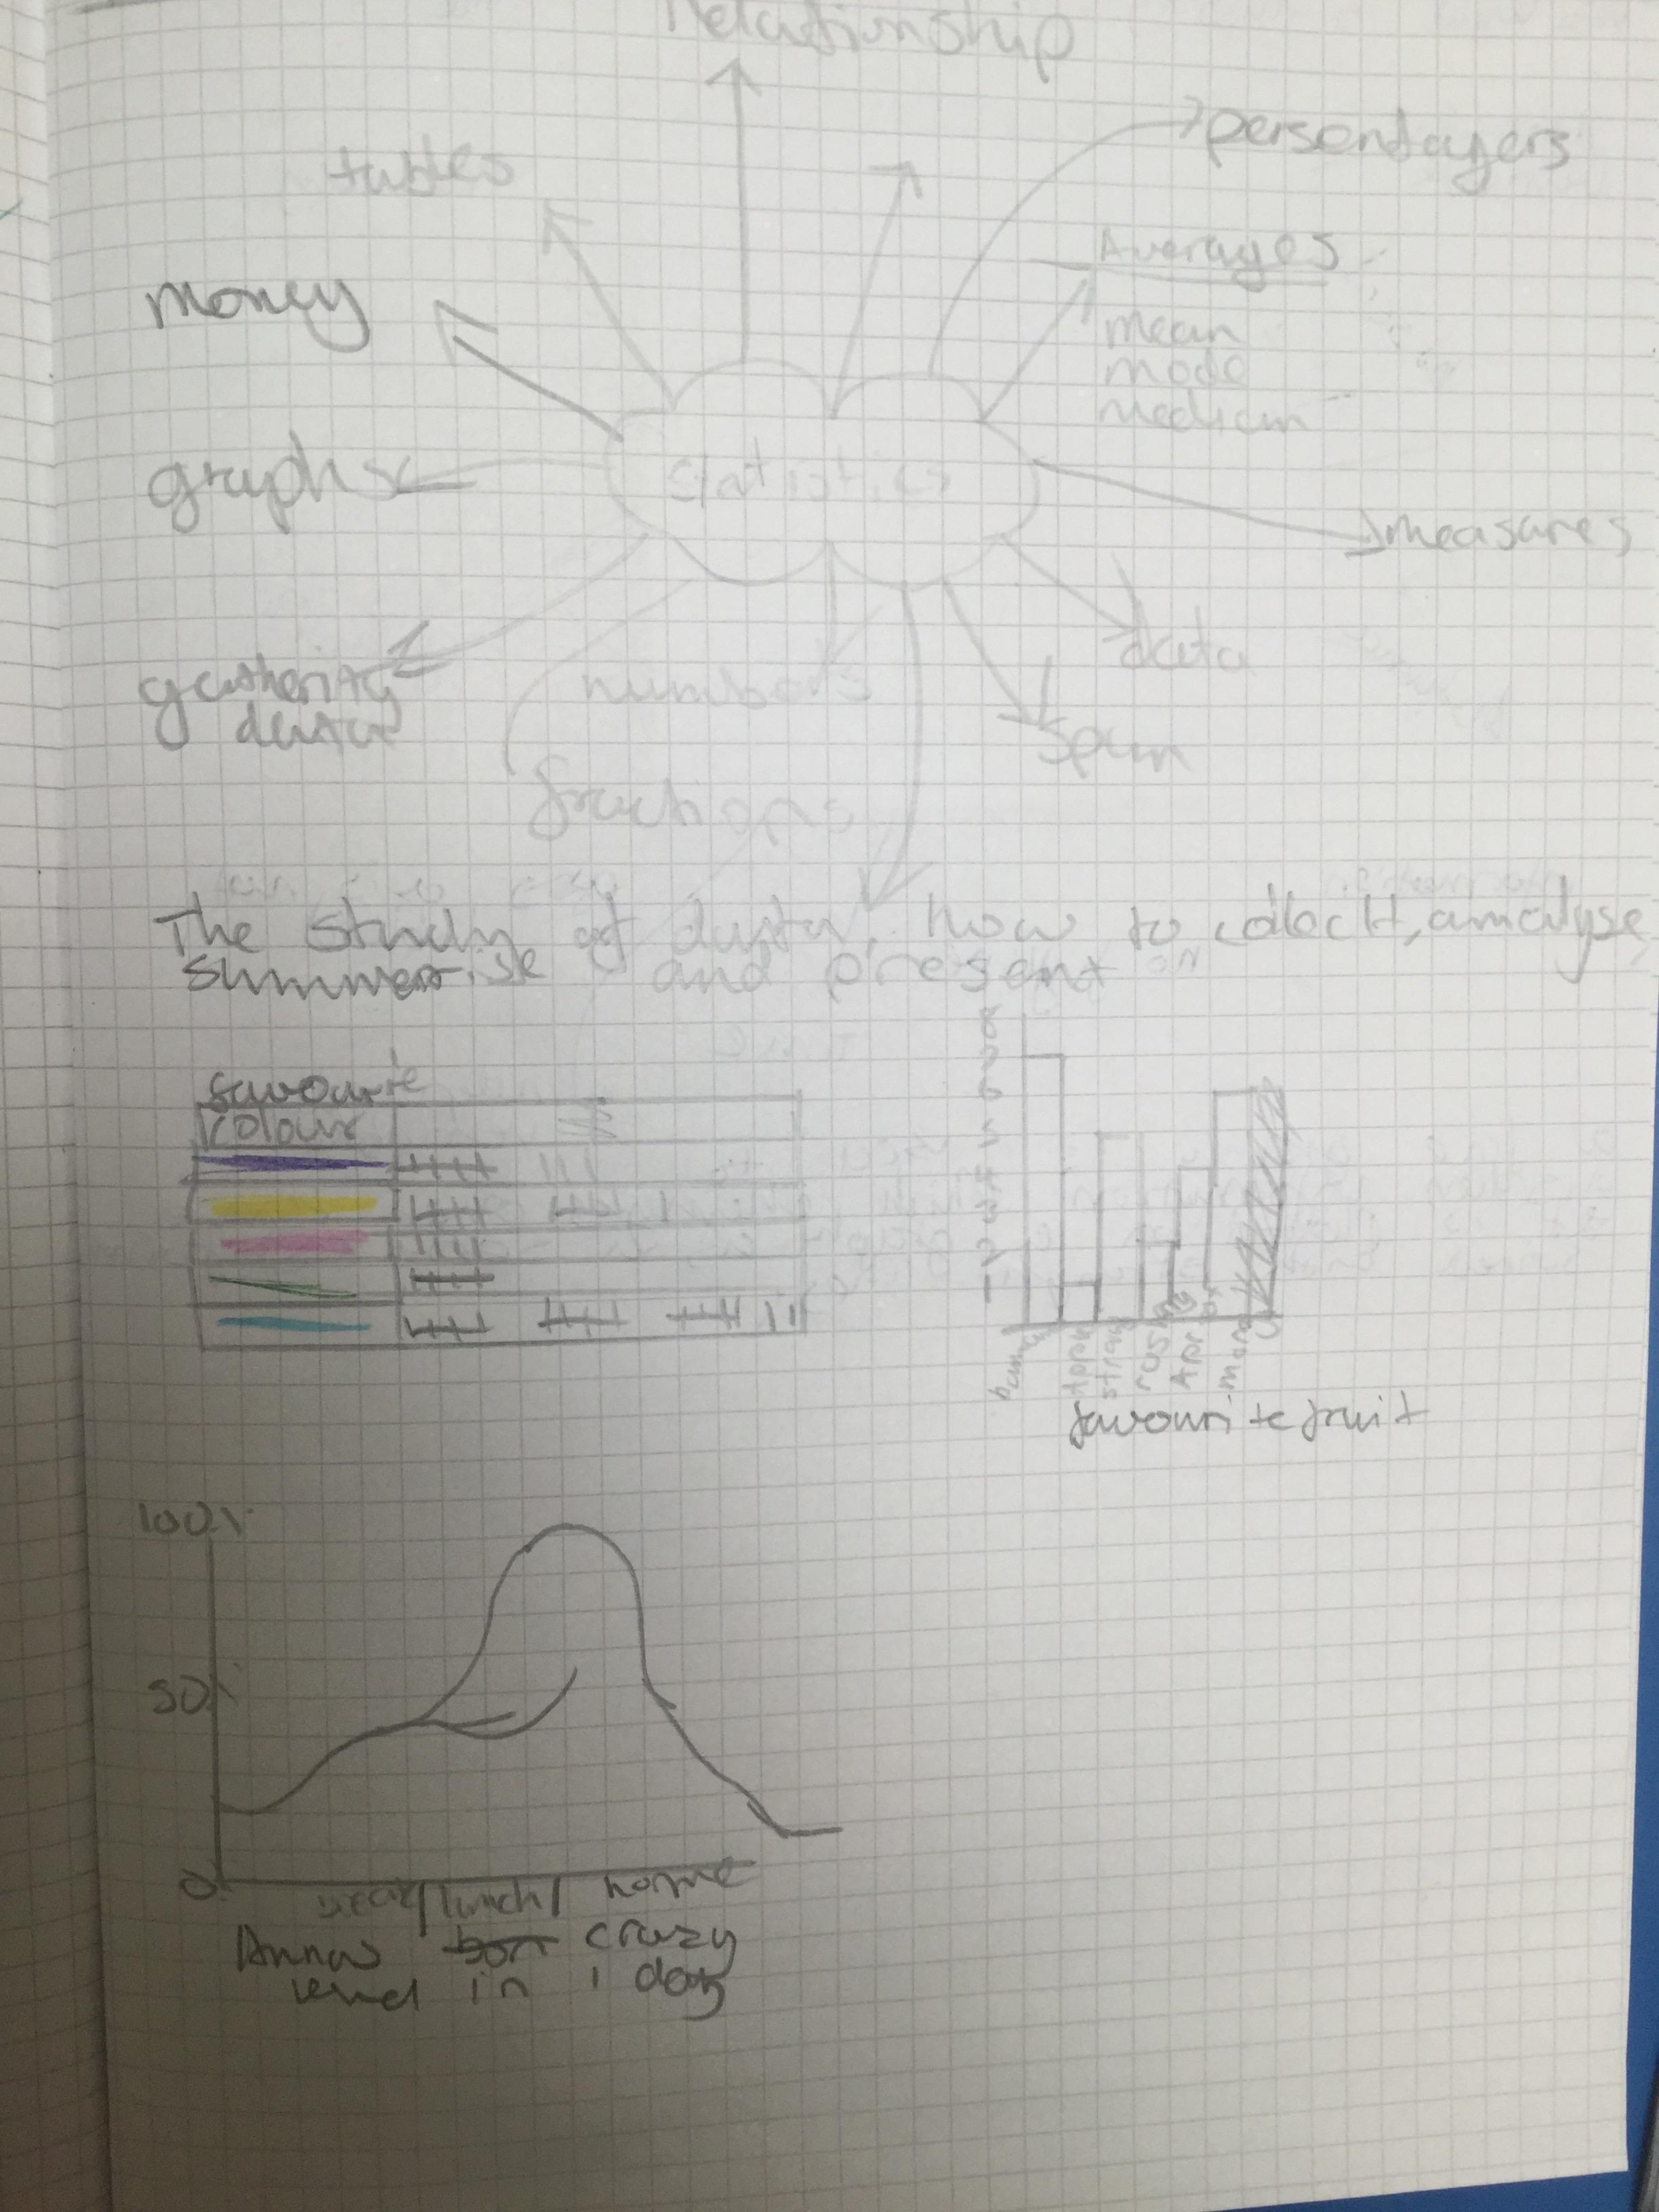 Relationship
persentagers
tables
Averages
mean
mode
medium
money
statistics
graphs
measures
data
gathering
data
numbers
spun
fractions
The study of data, how to collect, analyse
summerise and present
favourite
colour
8
7
6
5
4
3
2
1
favourite fruit
100%
50%
0
break / lunch / home
Annas crazy
level in 1 day